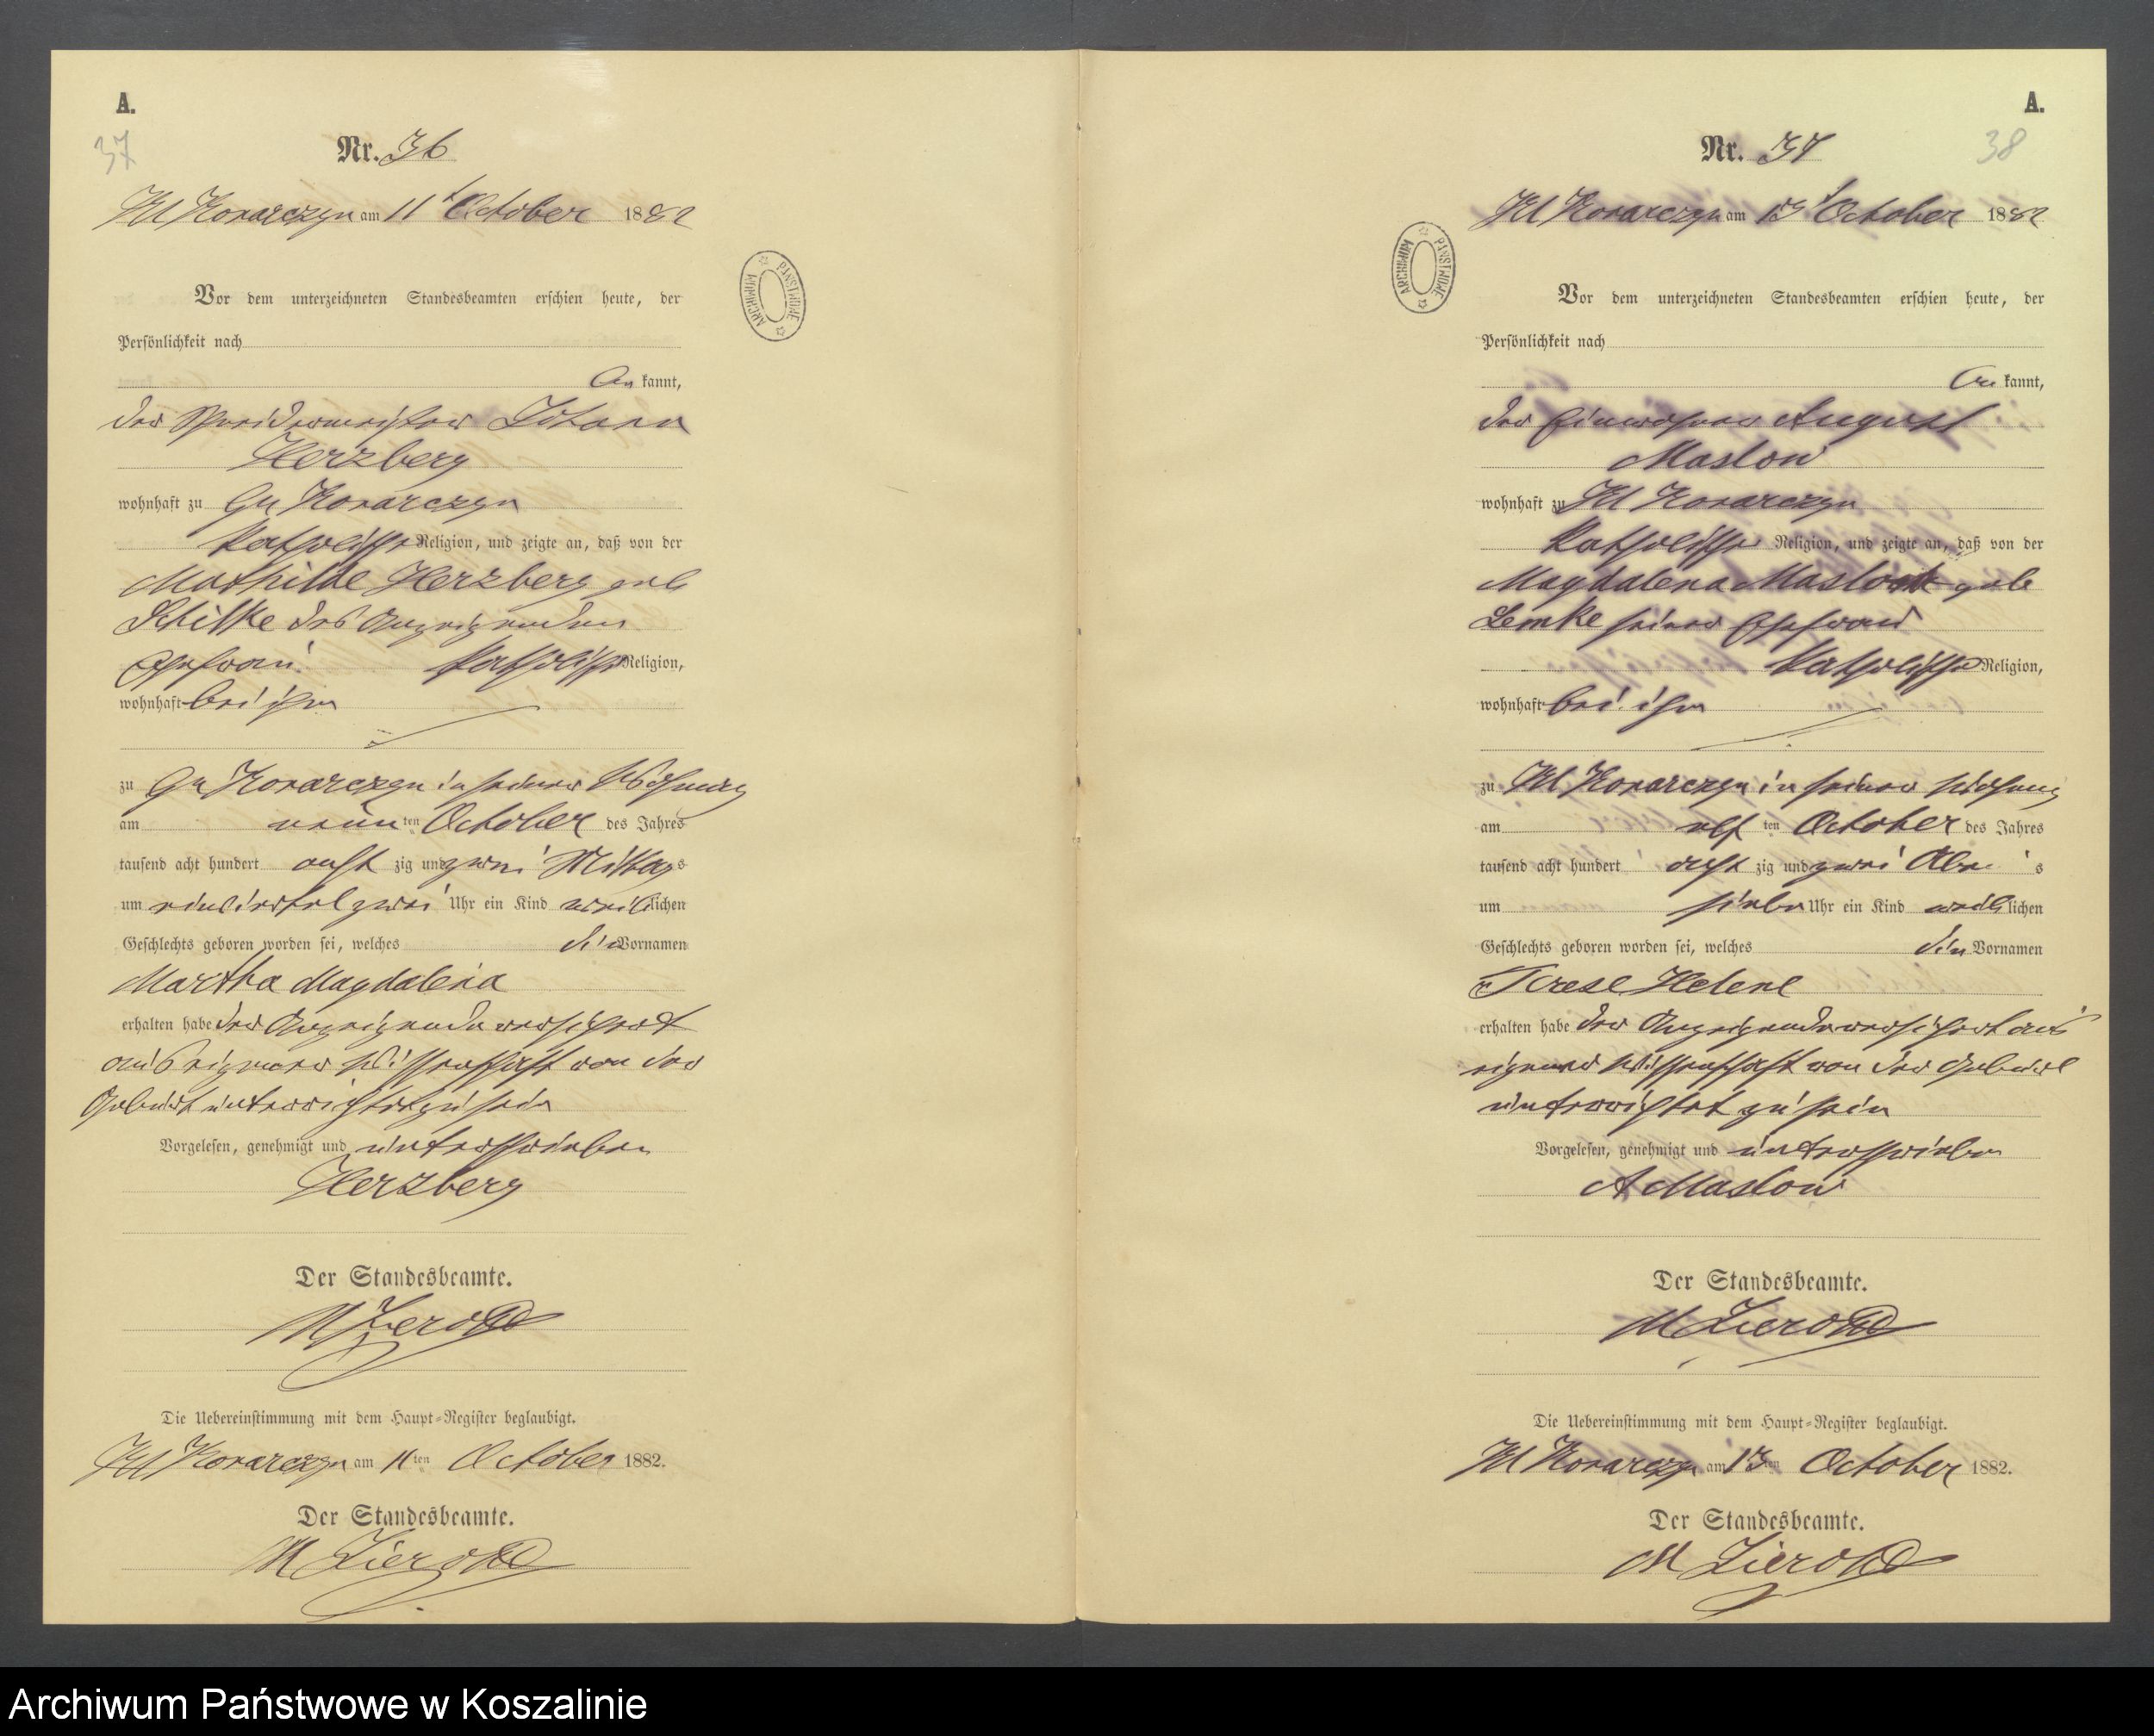 A.
37
Nr. 36
Kl Konarczyn am 11t October 1882
ARCHIWUM PAŃSTWOWE
Vor dem unterzeichneten Standesbeamten erschien heute, der
Persönlichkeit nach
kannt,
der Schneidermeister Johann
Herzberg
wohnhaft zu Gr Konarczyn
katholischer Religion, und zeigte an, daß von der
Mathilde Herzberg geb
des Anzeigenden
Ehefrau katholischer Religion,
wohnhaft bei ihm
zu Gr Konarczyn in seiner Wohnung
am neun ten October des Jahres
tausend acht hundert acht zig und zwei Mittags
um einviertel zwei Uhr ein Kind weiblichen
Geschlechts geboren worden sei, welches die Vornamen
Martha Magdalena
erhalten habe der Anzeigende versichert
aus eigener Wissenschaft von der
Geburt unterrichtet zu sein
Vorgelesen, genehmigt und unterschrieben
Herzberg
Der Standesbeamte.
M Zierold
Die Uebereinstimmung mit dem Haupt-Register beglaubigt.
Kl Konarczyn am 11ten October 1882.
Der Standesbeamte.
M Zierold
A.
38
Nr. 37
Kl Konarczyn am 13t October 1882
ARCHIWUM PAŃSTWOWE
Vor dem unterzeichneten Standesbeamten erschien heute, der
Persönlichkeit nach
kannt,
der Einwohner August
Maslow
wohnhaft zu Kl Konarczyn
katholischer Religion, und zeigte an, daß von der
Magdalena Maslow geb
Lemke seiner Ehefrau
katholischer Religion,
wohnhaft bei ihm
zu Kl Konarczyn in seiner Wohnung
am elf ten October des Jahres
tausend acht hundert acht zig und zwei
um sieben Uhr ein Kind weiblichen
Geschlechts geboren worden sei, welches die Vornamen
Terese Helene
erhalten habe der Anzeigende versichert aus
eigener Wissenschaft von der Geburt
unterrichtet zu sein
Vorgelesen, genehmigt und unterschrieben
A Maslow
Der Standesbeamte.
M Zierold
Die Uebereinstimmung mit dem Haupt-Register beglaubigt.
Kl Konarczyn am 13ten October 1882.
Der Standesbeamte.
M Zierold
Archiwum Państwowe w Koszalinie